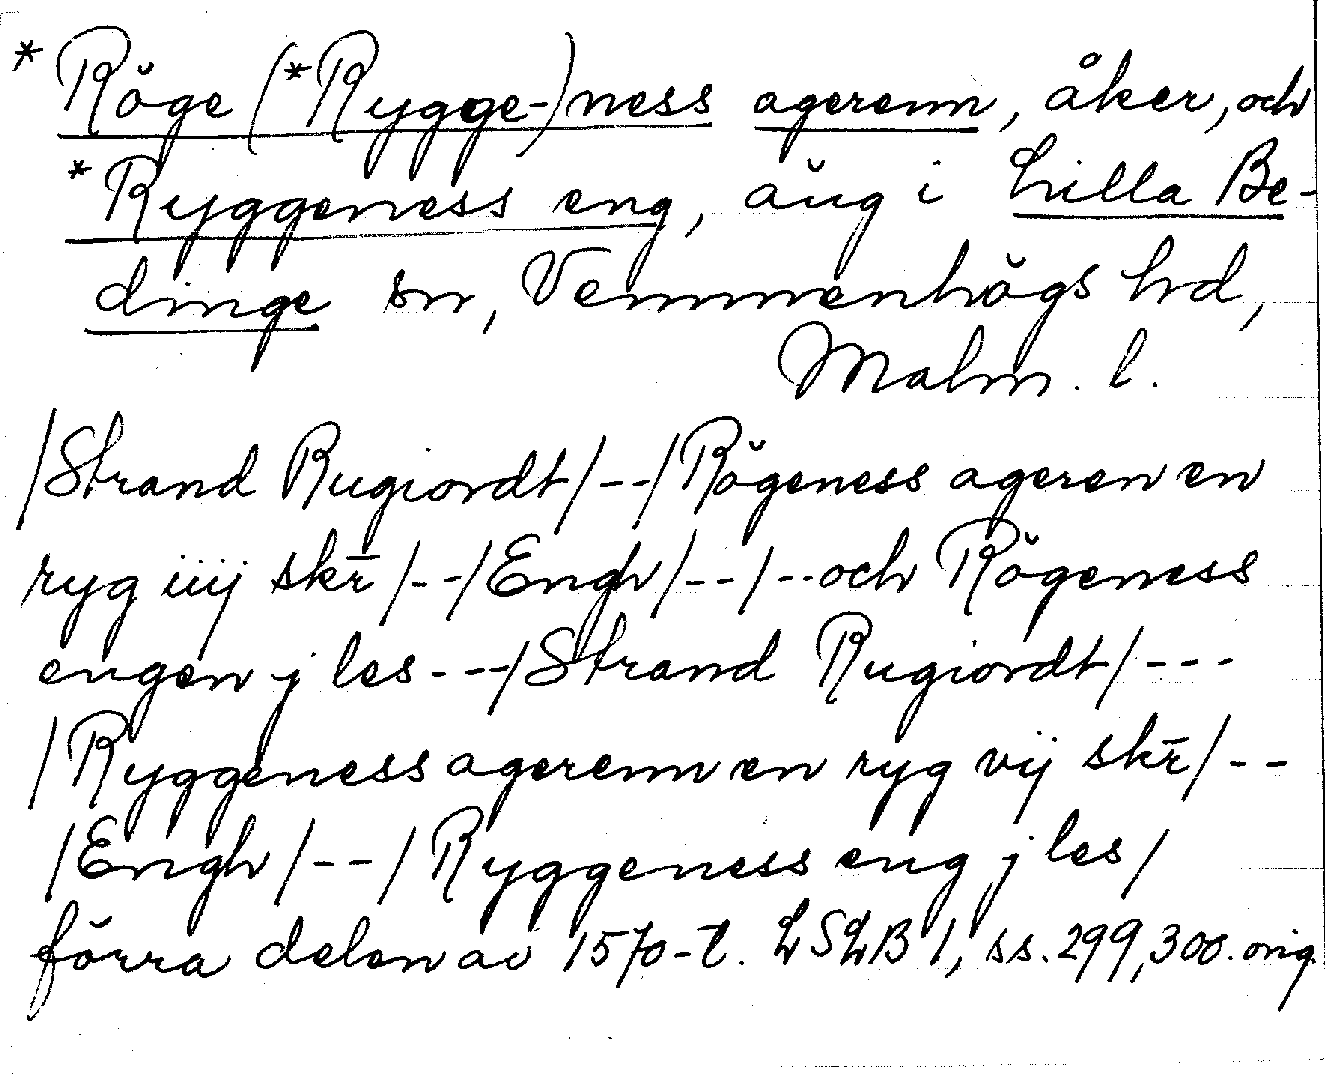 *Röge (*Rygge-)ness agerenn, åker, och
*Ryggeness eng, äng i Lilla Be-
dinge sn, Vemmenhögs hd,
Malm. l.
/Strand Rugiordt/--/Rögeness ageren en
ryg iiij skr̄/--/Engh/--/--och Rögeness
engen j les---/Strand Rugiordt/---
/Ryggeness agerenn en ryg vij skr̄/--
/Engh/--/Ryggeness eng j les/
förra delen av 1570-t. LSLB 1, ss. 299, 300. orig.